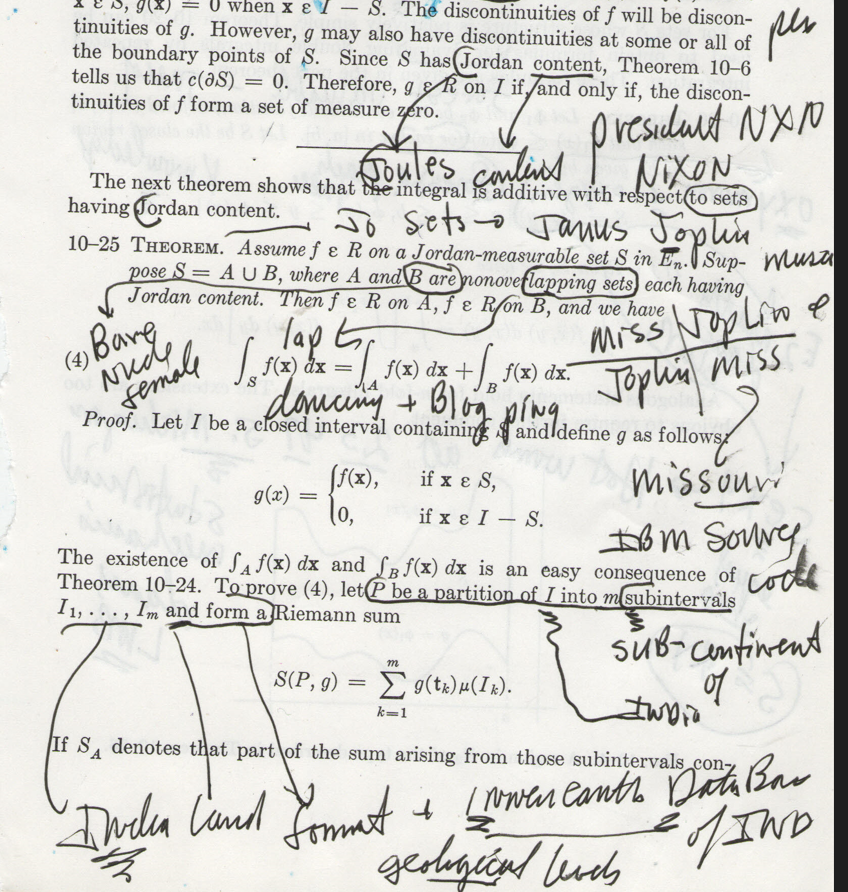 x ε S, g(x) = 0 when x ε I − S. The discontinuities of f will be discon-
tinuities of g. However, g may also have discontinuities at some or all of
the boundary points of S. Since S has Jordan content, Theorem 10–6
tells us that c(∂S) = 0. Therefore, g ε R on I if, and only if, the discon-
tinuities of f form a set of measure zero.
president NXN
Joules content
NiXON
The next theorem shows that the integral is additive with respect to sets
having Jordan content.
Jo Sets → Janus Joplin
10–25 THEOREM. Assume f ε R on a Jordan-measurable set S in E_n. Sup-
pose S = A ∪ B, where A and B are nonoverlapping sets each having
Jordan content. Then f ε R on A, f ε R on B, and we have
Miss Joplin
Joplin Miss
Bare
Nude
female
lap
(4) ∫_S f(x) dx = ∫_A f(x) dx + ∫_B f(x) dx.
dancing + Blog ping
Proof. Let I be a closed interval containing S and define g as follows:
g(x) = { f(x), if x ε S,
0, if x ε I − S.
missouri
IBM Source
code
The existence of ∫_A f(x) dx and ∫_B f(x) dx is an easy consequence of
Theorem 10–24. To prove (4), let P be a partition of I into m subintervals
I_1, . . . , I_m and form a Riemann sum
SUB-continent
of
INDia
S(P, g) = ∑_{k=1}^{m} g(t_k)μ(I_k).
If S_A denotes that part of the sum arising from those subintervals con-
India land format + Innen earth Data Ban
of IND
geological levels